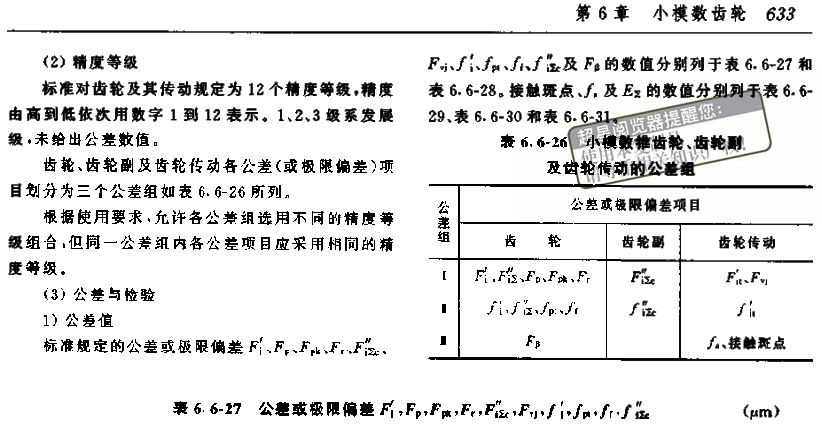 第 6 章 小模数齿轮 633
(2) 精度等级
标准对齿轮及其传动规定为 12 个精度等级,精度
由高到低依次用数字 1 到 12 表示。1、2、3 级系发展
级,未给出公差数值。
齿轮、齿轮副及齿轮传动各公差(或极限偏差)项
目划分为三个公差组如表 6.6-26 所列。
根据使用要求,允许各公差组选用不同的精度等
级组合,但同一公差组内各公差项目应采用相同的精
度等级。
(3) 公差与检验
1) 公差值
标准规定的公差或极限偏差 F′i、Fp、Fpk、Fr、F″iΣc、
Fvj、f′i、fpt、ff、f″iΣc及 Fβ 的数值分别列于表 6.6-27 和
表 6.6-28。接触斑点、fa 及 EΣ 的数值分别列于表 6.6-
29、表 6.6-30 和表 6.6-31。
超星阅览器提醒您:
表 6.6-26 小模数锥齿轮、齿轮副
及齿轮传动的公差组
公差组 公差或极限偏差项目
齿 轮 齿轮副 齿轮传动
Ⅰ F′i、F″iΣ、Fp、Fpk、Fr F″iΣc F′it、Fvj
Ⅱ f′i、f″iΣ、fpt、ff f″iΣc f′it
Ⅲ Fβ fa、接触斑点
表 6.6-27 公差或极限偏差 F′i,Fp,Fpk,Fr,F″iΣc,Fvj,f′i,fpt,ff,f″iΣc (μm)